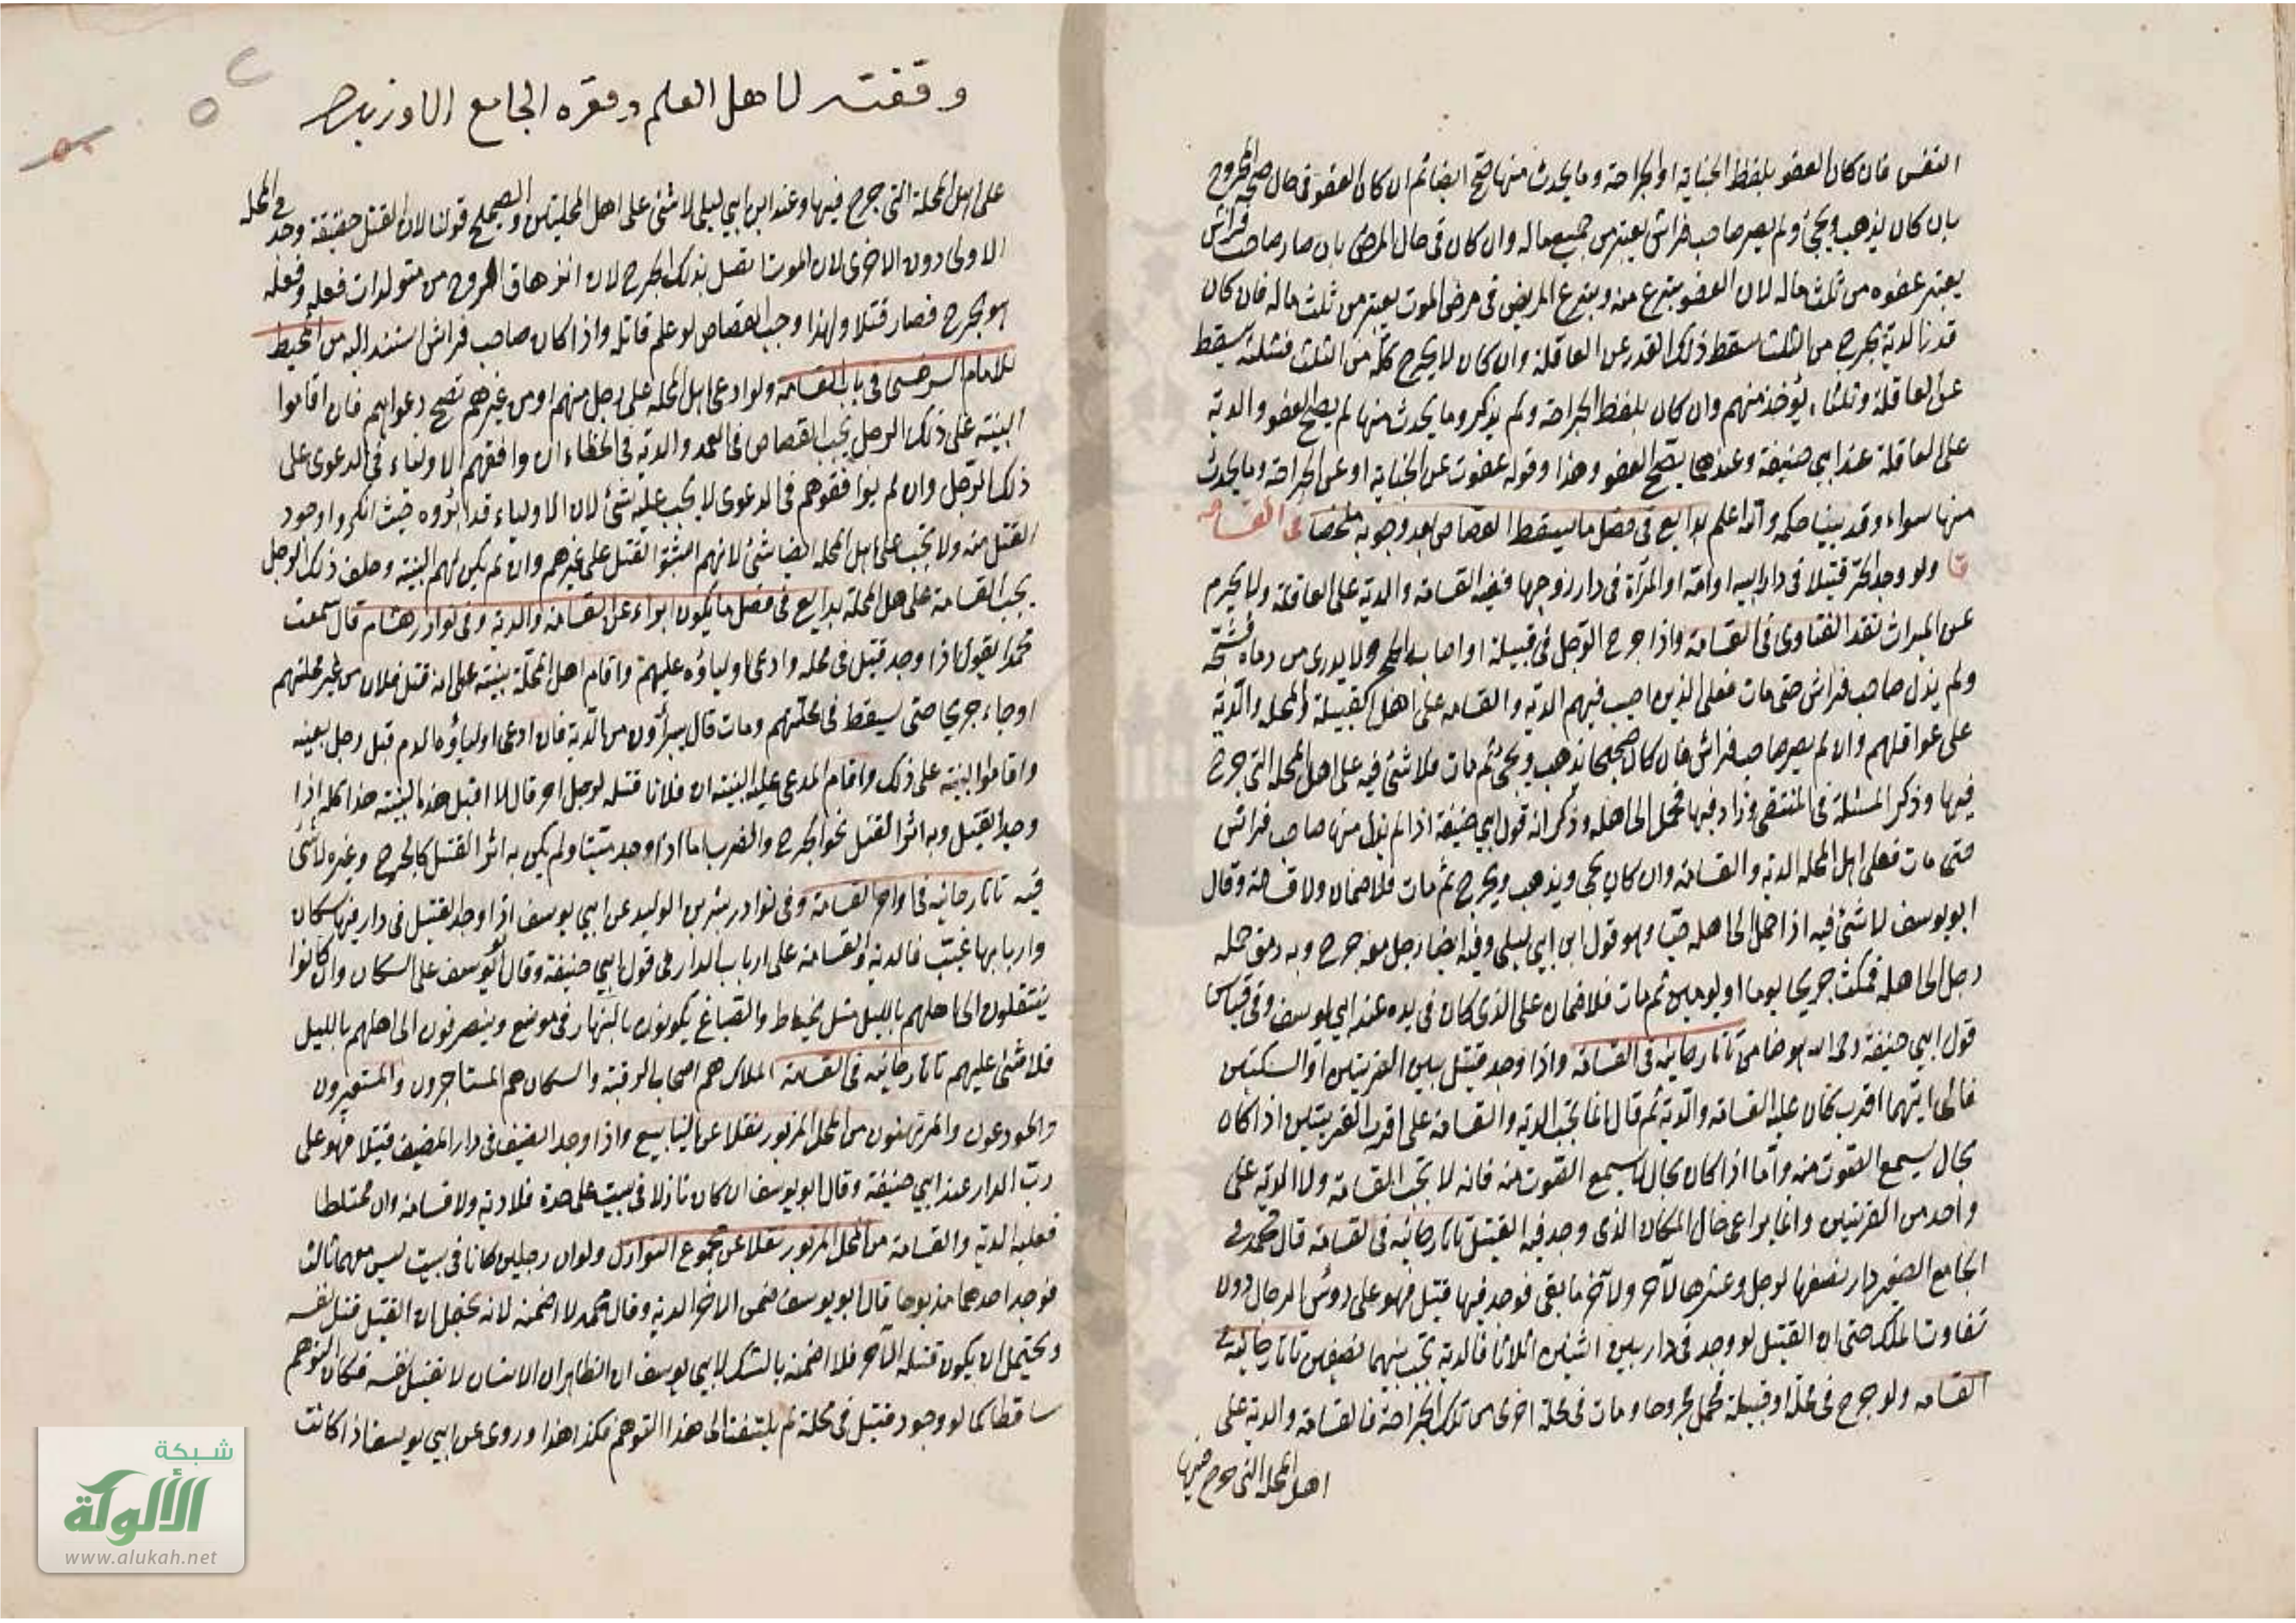 النفس فان كان العفو بلفظ الجناية او الجراحة وما يحدث منها صح ايضا ثم ان كان العفو فى حال صحة المجروح
بان كان يذهب ويجئ ولم يصر صاحب فراش يعتبر من جميع ماله وان كان فى حال المرض بان صار صاحب فراش
يعتبر عفوه من ثلث ماله لان العفو تبرع منه وتبرع المريض فى مرض الموت يعتبر من ثلث ماله فان كان
قدر الدية يخرج من الثلث سقط ذلك القدر عن العاقلة وان كان لا يخرج كله من الثلث فثلثه يسقط
عن العاقلة وثلثاه يؤخذ منهم وان كان بلفظ الجراحة ولم يذكر وما يحدث منها لم يصح العفو والدية
على العاقلة عند ابي حنيفة وعندهما يصح العفو وهذا وقوله عفوت عن الجناية او عن الجراحة وما يحدث
منها سواء وقد بينا حكمه والله اعلم بدايع فى فصل ما يسقط القصاص بعد وجوبه ملخصا فى القسامه
ولو وجد الحر قتيلا فى دار ابيه او امه او المرأة فى دار زوجها ففيه القسامة والدية على العاقلة ولا يحرم
عن الميراث نقد الفتاوى فى القسامة واذا جرح الرجل فى قبيلة او اصابه حجر ولا يدرى من رماه فشجه
ولم يزل صاحب فراش حتى مات فعلى الذين اصيب فيهم الدية والقسامه على اهل القبيلة والمحله والدية
على عواقلهم وان لم يصر صاحب فراش فان كان صحيحا يذهب ويجئ ثم مات فلا شئ فيه على اهل المحله التى جرح
فيها وذكر المسئلة فى المنتقى وزاد فيها فحمل الى اهله وذكر انه قول ابي حنيفة اذا لم يزل منها صاحب فراش
حتى مات فعلى اهل المحله الدية والقسامة وان كان يجئ ويذهب ويخرج ثم مات فلا ضمان ولا قسامة وقال
ابو يوسف لا شئ فيه اذا حمل الى اهله حيا وهو قول ابن ابي ليلى وفيه ايضا رجل معه جرح وبه رمق حمله
رجل الى اهله فمكث جريحا يوما او يومين ثم مات فلا ضمان على الذى كان فى يده عند ابي يوسف وفى قياس
قول ابي حنيفة رحمه الله هو ضامن تاتارخانيه فى القسامة واذا وجد قتيل بين القريتين او السكتين
فالى ايتهما اقرب كان عليه القسامة والدية ثم قال انما تجب الدية والقسامة على اقرب القريتين اذا كان
بحال يسمع الصوت منه واما اذا كان بحال لا يسمع الصوت منه فانه لا تجب القسامة ولا الدية على
واحد من القريتين وانما يراعى حال المكان الذى وجد فيه القتيل تاتارخانيه فى القسامة قال محمد فى
الجامع الصغير دار نصفها لرجل وعشرها لآخر ولآخر ما بقى فوجد فيها قتيل فهو على رؤس الرجال دون
تفاوت الملك حتى ان القتيل لو وجد فى دار بين اثنين اثلاثا فالدية تجب بينهما نصفين تاتارخانيه فى
القسامه ولو جرح فى محلة او قبيلة فحمل مجروحا ومات فى محلة اخرى من تلك الجراحة فالقسامة والدية على
اهل المحله التى جرح فيها
وقفته لاهل العلم ومقره الجامع الاوزبيد
على اهل المحلة التى جرح فيها وعند ابن ابي ليلى لا شئ على اهل المحلتين والصحيح قولنا لان القتل حقيقة وجد فى المحله
الاولى دون الاخرى لان الموت اتصل بذلك الجرح لان انزهاق الروح من متولدات فعله وفعله
هو الجرح فصار قتلا ولهذا وجب القصاص لو علم قاتله واذا كان صاحب فراش استند اليه من المحيط
للامام السرخسى فى باب القسامة ولو ادعى اهل المحله على رجل منهم او من غيرهم تصح دعواهم فان اقاموا
البينة على ذلك الرجل يجب القصاص فى العمد والدية فى الخطاء ان وافقهم الاولياء فى الدعوى على
ذلك الرجل وان لم يوافقوهم فى الدعوى لا يجب عليه شئ لان الاولياء قد ابرؤوه حيث انكروا وجود
القتل منه ولا يجب على اهل المحله ايضا شئ لانهم اثبتوا القتل على غيرهم وان لم يكن لهم البينة وحلف ذلك الرجل
يجب القسامة على اهل المحلة بدايع فى فصل ما يكون ابراء عن القسامة والدية وفى نوادر هشام قال سمعت
محمدا يقول اذا وجد قتيل فى محله وادعى اولياؤه عليهم واقام اهل المحلة بينة على انه قتل فلان من غير محلتهم
او جاء جريحا حتى يسقط فى محلتهم ومات قال يبرأون من الدية فان ادعى اولياؤه الدم قبل رجل بعينه
واقاموا البينة على ذلك واقام المدعى عليه البينة ان فلانا قتله لرجل اخر قال لا اقبل هذه البينة هذا كله اذا
وجد القتيل وبه اثر القتل نحو الجرح والضرب اما اذا وجد ميتا ولم يكن به اثر القتل كالجرح وغيره لا شئ
فيه تاتارخانيه فى اواخر القسامة وفى نوادر بشر بن الوليد عن ابي يوسف اذا وجد القتيل فى دار فيها سكان
واربابها غيب فالدية والقسامة على ارباب الدار فى قول ابي حنيفة وقال ابو يوسف على السكان وان كانوا
ينتقلون الى اهلهم بالليل مثل الخياط والصباغ يكونون بالنهار فى موضع وينصرفون الى اهلهم بالليل
فلا شئ عليهم تاتارخانيه فى القسامة الملاك هم اصحاب الرقبة والسكان هم المستاجرون والمستعيرون
والمودعون والمرتهنون من المحل المزبور نقلا عن الينابيع واذا وجد الضيف فى دار المضيف قتيلا فهو على
رب الدار عند ابي حنيفة وقال ابو يوسف ان كان نازلا فى بيت على حدة فلا دية ولا قسامة وان مختلطا
فعليه الدية والقسامة من المحل المزبور نقلا عن مجموع النوازل ولو ان رجلين كانا فى بيت ليس معهما ثالث
فوجد احدهما مذبوحا قال ابو يوسف ضمن الاخر الدية وقال محمد لا اضمنه لانه يحتمل ان القتيل قتل نفسه
ويحتمل ان يكون قتله الآخر فلا اضمنه بالشك لابي يوسف ان الظاهر ان الانسان لا يقتل نفسه فكان التوهم
ساقطا كما لو وجد قتيل فى محلة لم يلتفت الى هذا التوهم فكذا هذا وروى عن ابي يوسف اذا كانت
شبكة
الألوكة
www.alukah.net